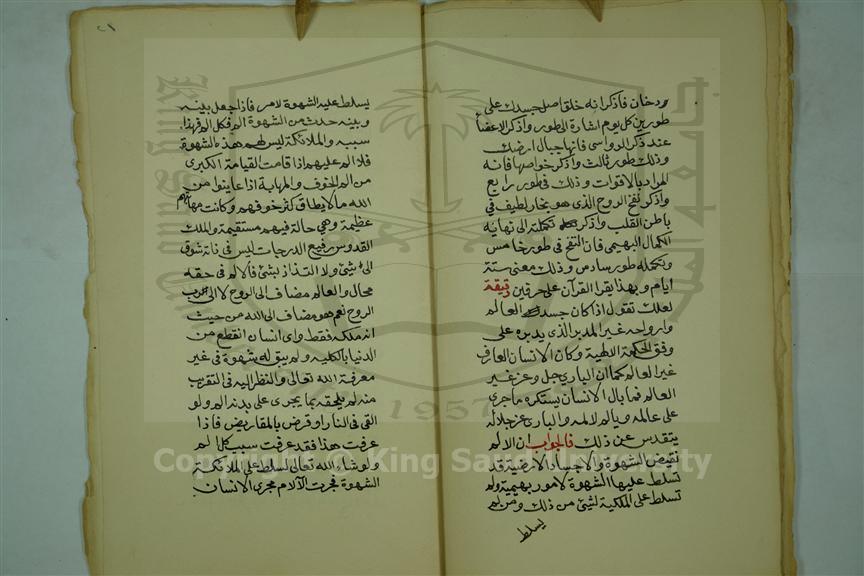 ودخان فاذكر انه خلق اصل جسدك على
طورين كل يوم اشارة الى طور واذكر الاعضا
عند ذكر الرواسي فانها جبال ارضك
وذلك طور ثالث واذكر خواصها فانه
المراد بالاقوات وذلك في طور رابع
واذكر نفخ الروح الذي هو بخار لطيف في
باطن القلب واذكر تكملته الى نهاية
الكمال البهيمي فان النفخ في طور خامس
وتكمله طور سادس وذلك معنى ستة
ايام وبهذا يقرا القرآن على حرفين دقيقة
لعلك تقول اذ كان جسدك العالم
وارواحه غير المدبر الذي يدبره على
وفق الحكمة الالهية وكان الانسان العارف
غير العالم كما ان الباري جل وعز غير
العالم فما بال الانسان يستكره ما جرى
على عالمه ويالم لالمه والباري عز جلاله
يتقدس عن ذلك فالجواب ان الالم
نقيض الشهوة والاجساد الارضية قد
تسلط عليها الشهوة لامور بهيمية ولم
تسلط على الملكية لشئ من ذلك ومن لم
يسلط
٢١
يسلط عليه الشهوة لامر فاذا جعل بينه
وبينه حدث من الشهوة الم فكل الم فهذا
سببه والملائكة ليس لهم هذه الشهوة
فلا الم عليهم اذا قامت القيامة الكبرى
من الم الخوف والمهابة اذا عاينوا من
الله ما لا يطاق كثر خوفهم وكانت مهابتهم
عظيمة وهي حالة فيهم مستقيمة والملك
القدوس رفيع الدرجات ليس في ذاته شوق
الى شئ ولا التذاذ بشئ فالالم في حقه
محال والعالم مضاف الى الروح لا الى الرب
الروح نعم هو مضاف الى الله من حيث
انه ملكه فقط واي انسان انقطع من
الدنيا بالكلية ولم يبق له شهوة في غير
معرفة الله تعالى والنظر اليه في التقرب
منه لم يلحقه بما يجرى على بدنه الم ولو
القى في النار او قرض بالمقاريض فاذا
عرفت هذا فقد عرفت سبب كل الم
ولو شاء الله تعالى لسلط على ملائكته
الشهوة فجرت الآلام مجرى الانسان
Copyright © King Saud University
1957